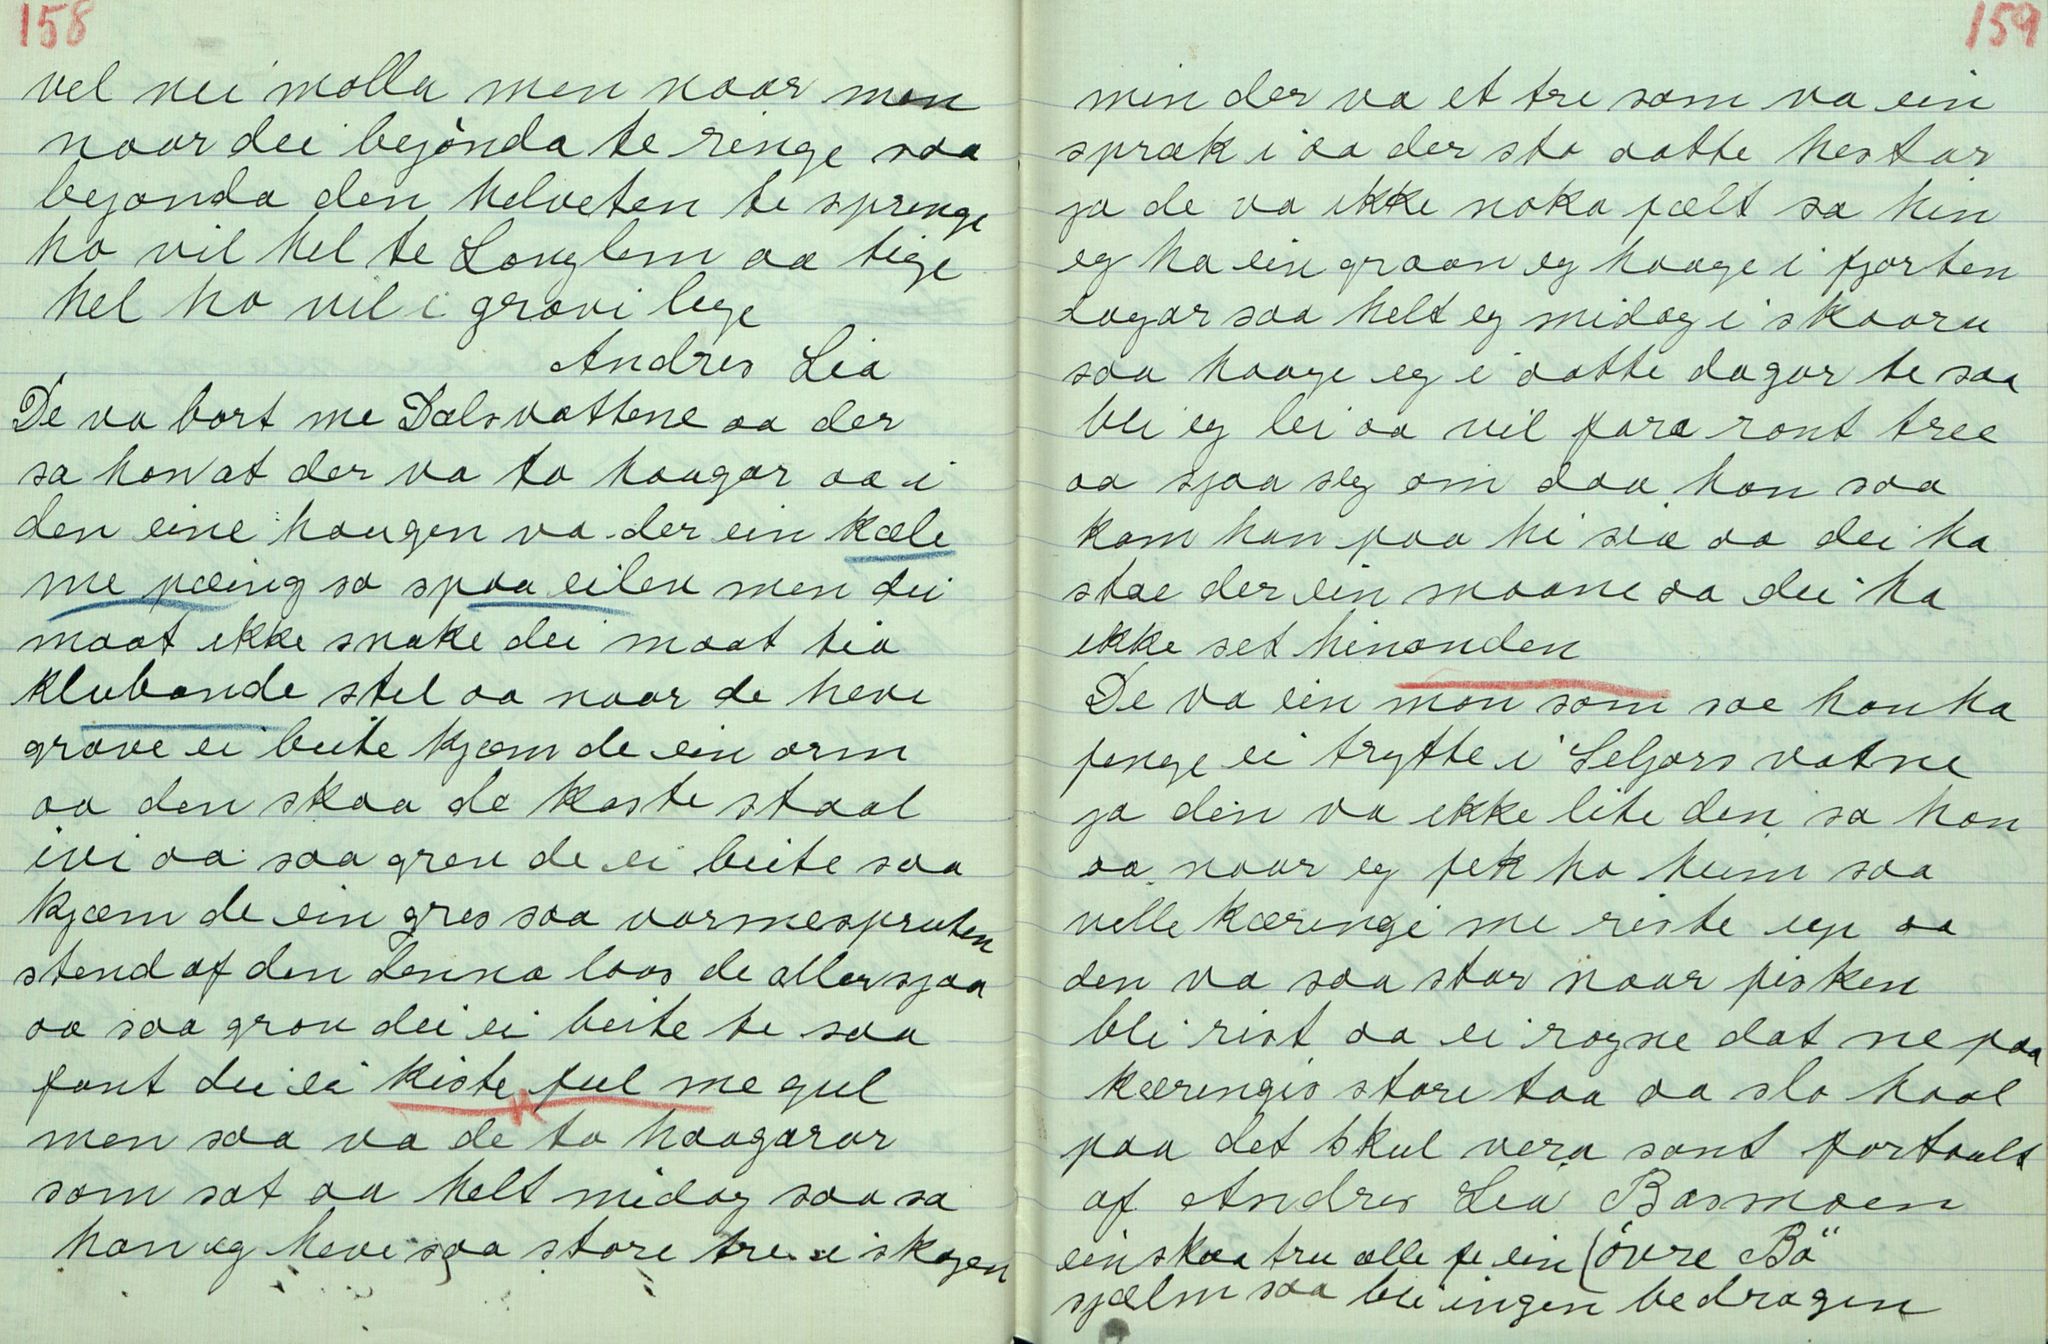 158
vel nei molla men naar men
naar dei bejönda te ringe saa
bejonda den helveten te springe
ho vil hel te Longlem aa tige
hel ho vil i gravi lige
Andres Lia
De va bort me Dalsvattene aa der
sa hon at der va to haugar aa i
den eine haugen va der ein kæle
me pæing so spaa eilen men dei
maat ikke snake dei maat tia
klubande stel aa naar de heve
grave ei beite kjæm de ein orm
aa den skaa de kaste staal
ivi aa saa grev de ei beite saa
kjæm de ein gres saa varmespruten
stend af den denna laas de aller sjaa
aa saa grov dei ei beite te saa
fant dei ei kiste ful me gul
men saa va de to haagarar
som sat aa helt midag saa sa
han eg heve saa store tre i skogen
159
min der va et tre som va ein
spræk i aa der sto aatte hestar
ja de va ikke noka fælt sa hin
eg ha ein graan eg haage i fjorten
dagar saa helt eg midag i skaaru
saa haage eg i aatte dagar te saa
blei eg lei aa vil fara ront tree
aa sjaa seg om daa han saa
kom han paa hi sia aa dei ha
stae der ein maane aa dei ha
ikke set hinanden
De va ein mon som sae han ha
fenge ei trytte i Seljors vatne
ja den va ikke lite den sa hon
aa naar eg fek ho heim saa
velle kæringi me riste up aa
den va saa stor naar fisken
bli rist aa ei rogne dat ne paa
kæringis store taa aa slo haal
paa det skul vera sant fortaalt
af Andres Lia Basmoen
ein skaa tru alle fe ein (övre Bö"
sjælm saa blei ingen bedragen